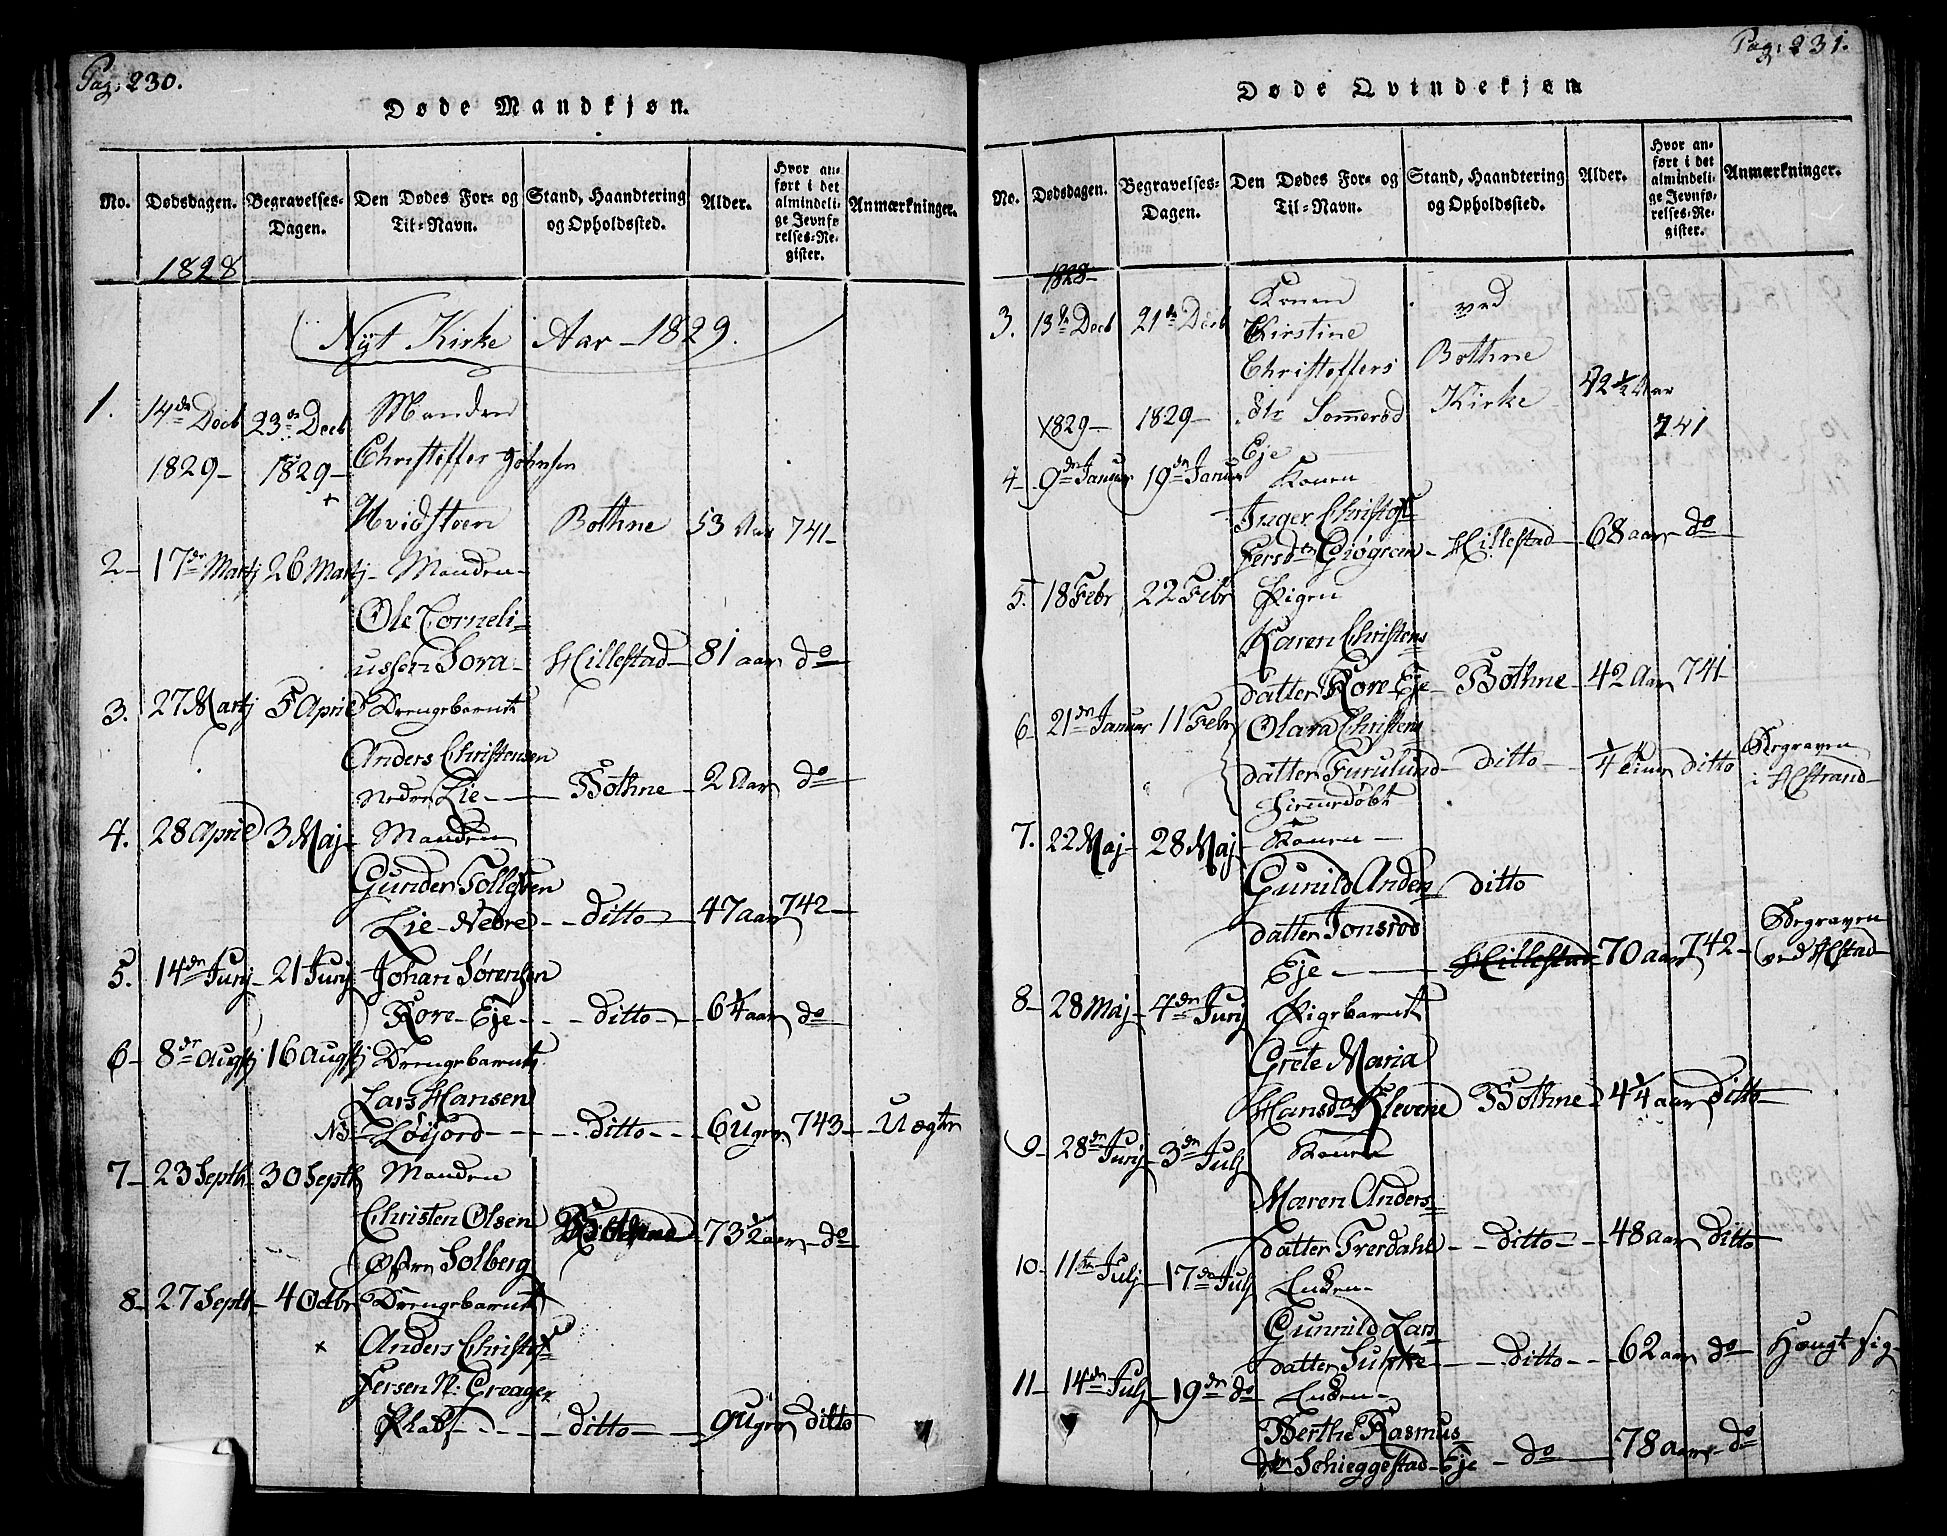 Pag: 230.
Døde Mandkjøn.
No. Dødsdagen. Begravelses-Dagen. Den Dødes For- og Til-Navn. Stand, Haandtering og Opholdssted. Alder. Hvor anført i det almindelige Jevnførelses-Register. Anmærkninger.
1828
Nyt Kirke Aar - 1829.
1. 14de Decb 23de Decb Manden
1829- 1829- Christoffer
Hvidsteen Bothne 53 Aar 741-
2- 17de Martj 26 Martj- Manden-
Ole Corneli-
ussen Sora- Hillestad- 81 aar do
3. 27 Martj 5 April Drengebarnet
Anders Christensen
Nedre Lie- Bothne 2 Aar do
4. 28 April 3 Maj- Manden
Gunder Tollefsen
Lie-Nedre- ditto- 47 aar 742-
5. 14de Junj- 21 Junj Johan Sørensen
Kore-Eje- - -ditto- 6¼ aar do
6- 8de Augstj 16 Augstj Drengebarnet
Lars Hansen
Løijord- - - -ditto- - 6 Uger 743- Uægte
7- 23 Septb. 30 Septb. Manden
Christen Olsen 73½ aar- do
Østre Solberg
8- 27 Septb- 4 Octbr Drengebarnet
× Anders Christof-
fersen N: Greager
Plads- - - ditto- - 9 Uger ditto
Pag: 231.
Døde Qvindekjøn
No. Dødsdagen. Begravelses-Dagen. Den Dødes For- og Til-Navn. Stand, Haandtering og Opholdssted. Alder. Hvor anført i det almindelige Jevnførelses-Register. Anmærkninger.
1828-
3. 13de Decb 21de Decb Konen ved
Kirstine
Christoffers Bothne
1829- 1829- dtr Sommerød Kirke 42½ Aar
741
Eje
4- 9de Januar 19de Januar Konen
Inger Christof-
fersdtr Gjøgreen- Hillestad- 68 aar do
5. 18 Febr 22 Febr Pigen
Karen Christens
datter Kore-Eje- Bothne- 42 Aar 741-
6- 21de Januar 11 Febr Olava Christens
datter Furulund- ditto- ¼ ditto Begraven
i HStrand
Hiemedøbt
7. 22 Maj- 28 Maj- Konen-
Gunild Anders ditto
datter Jonsrød
Eje- Hillestad- 70 aar 742- Begraven
ved HStad
8- 28 Maj- 4de Junj Pigebarnet
Grete Maria
Hansdr Klevene Bothne- 4¼ aar ditto-
9- 28de Junj 3de Julj Konen
Maren Anders-
datter Frerdahl- - ditto- - 48 aar ditto
10- 11te Julj- 17de Julj Enken-
Gunnild Lars-
datter Sukke- - ditto- - 62 aar do Hængt sig-
11- 14de Julj- 19de do- Enken-
Berthe Rasmus
dtr Schieggestad-Eje - do- 78 aar- do